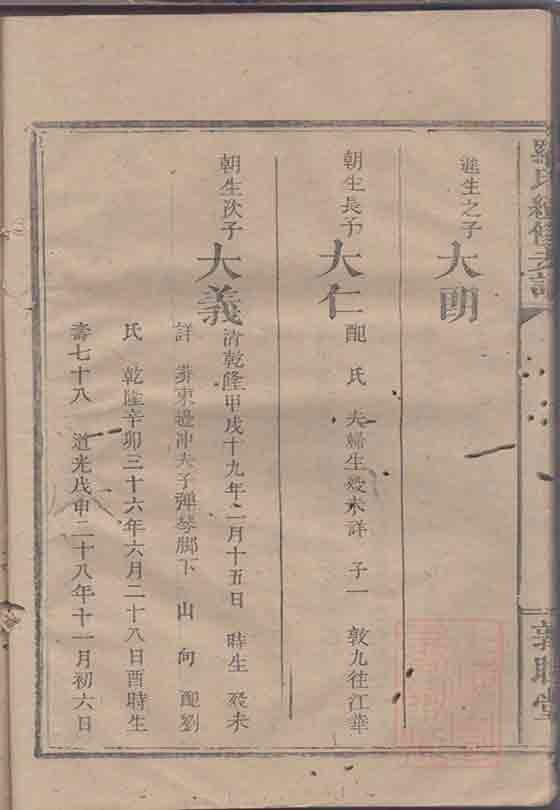 羅氏續修支譜
敦睦堂
進生之子 大朗
朝生長子 大仁 配 氏 夫婦生歿未詳 子一 敦九往江華
朝生次子 大義 清乾隆甲戌十九年二月十五日 時生 歿未
詳 葬東邊沖夫子彈琴腳下 山 向 配劉
氏 乾隆辛卯三十六年六月二十八日酉時生
壽七十八 道光戊申二十八年十一月初六日